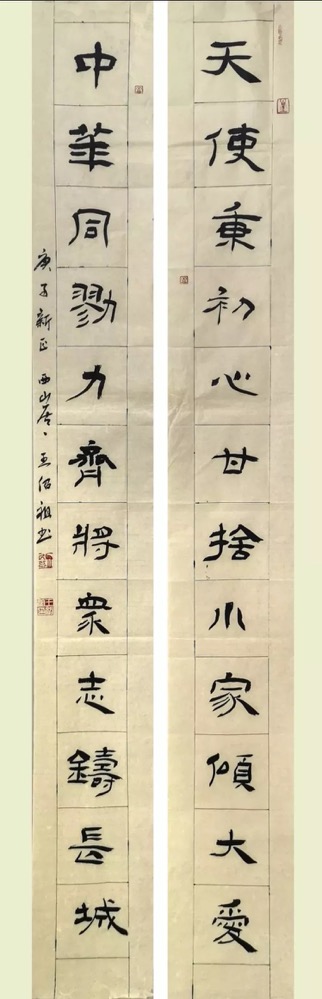 天使秉初心甘捨小家傾大愛
中華同勠力齊將衆志鑄長城
庚子新正 西山居 王紹祖書